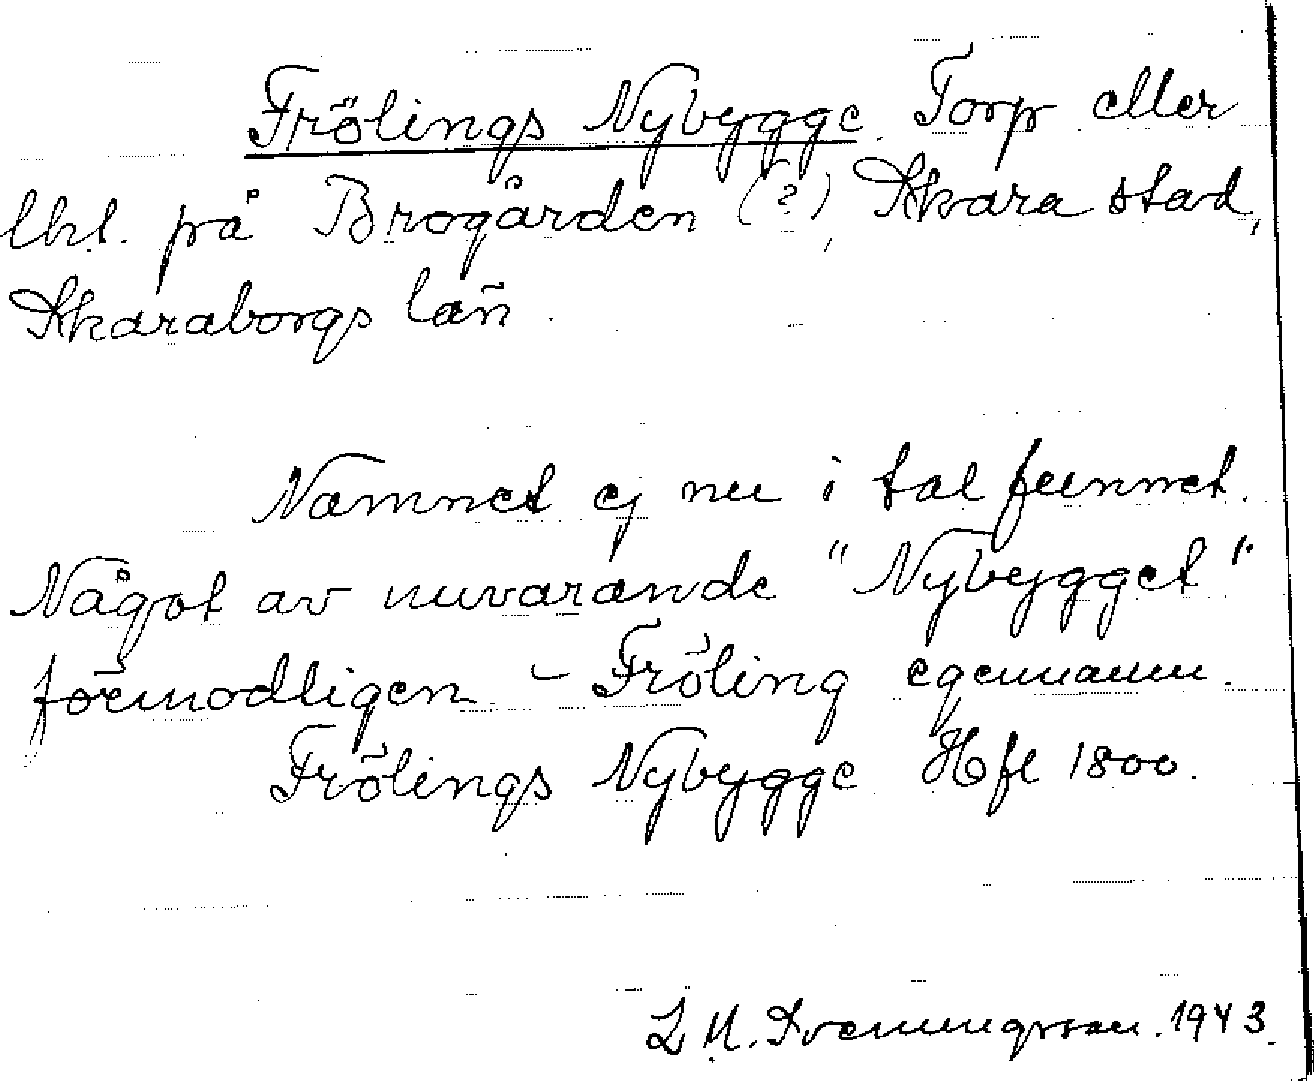 Frölings Nybygge. Torp eller
lht. på Brogården (?), Skara stad,
Skaraborgs län.
Namnet ej nu i tal funnet.
Något av nuvarande "Nybygget"
förmodligen – Fröling egennamn.
Frölings Nybygge Hfl 1800.
1943.